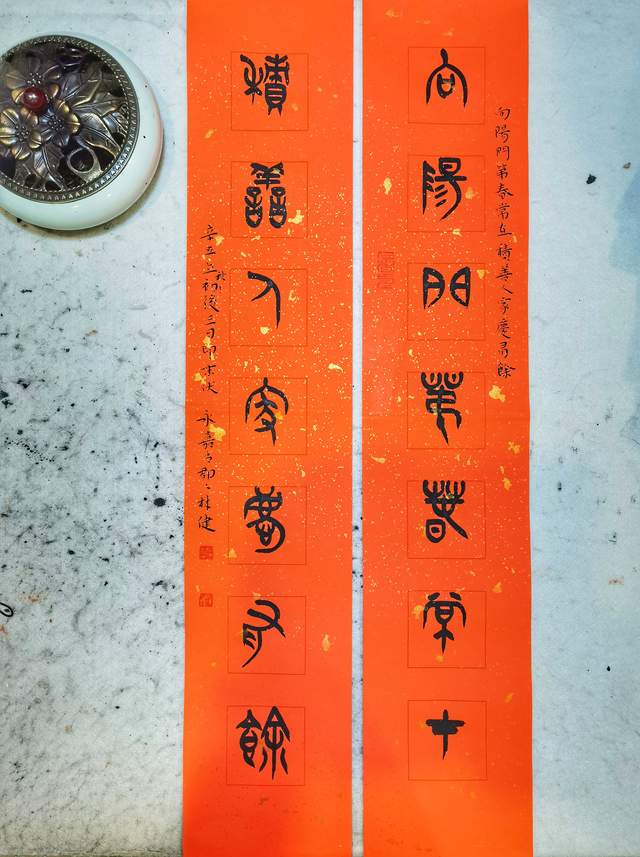 向陽門第春常在積善人家慶有餘
向陽門第春常在
積善人家慶有餘
辛丑立秋初後三日即末伏 永嘉林健